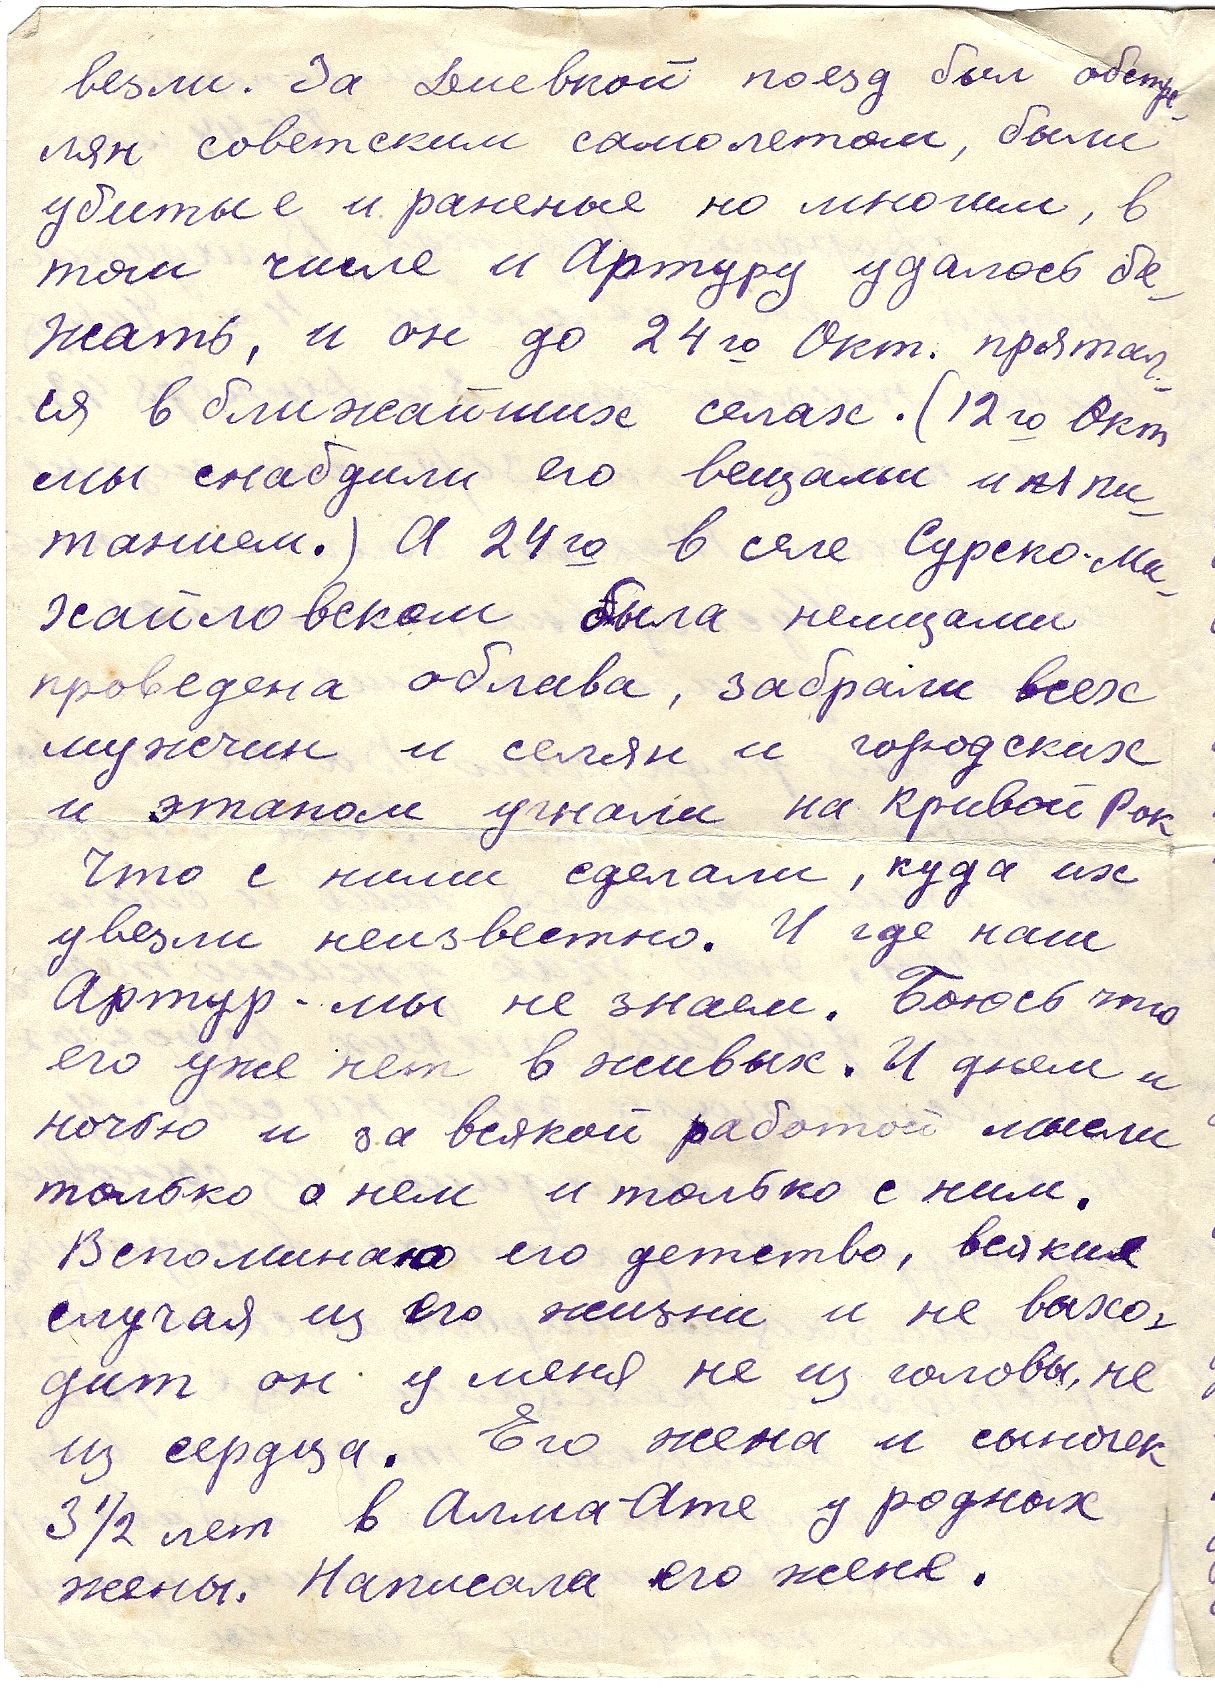 везли. За Диевкой поезд был обстре-
лян советским самолетом, были
убитые и раненые но многим, в
том числе и Артуру удалось бе-
жать, и он до 24го Окт. прятал-
ся в ближайших селах. (12го Окт
мы снабдили его вещами и пи-
танием.) А 24го в селе Сурско-Ми-
хайловском была немцами
проведена облава, забрали всех
мужчин и селян и городских
и этапом угнали на Кривой Рог
Что с ними сделали, куда их
увезли неизвестно. И где наш
Артур - мы не знаем. Боюсь что
его уже нет в живых. И днем и
ночью и за всякой работой мысли
только о нем и только с ним.
Вспоминаю его детство, всякие
случая из его жизни и не выхо-
дит он у меня не из головы, не
из сердца. Его жена и сыночек
3 1/2 лет в Алма-Ате у родных
жены. Написала его жене.